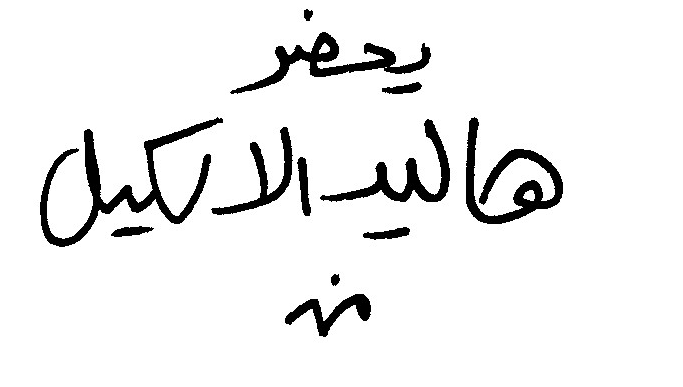 يحضر
هاليد الاكيل
من